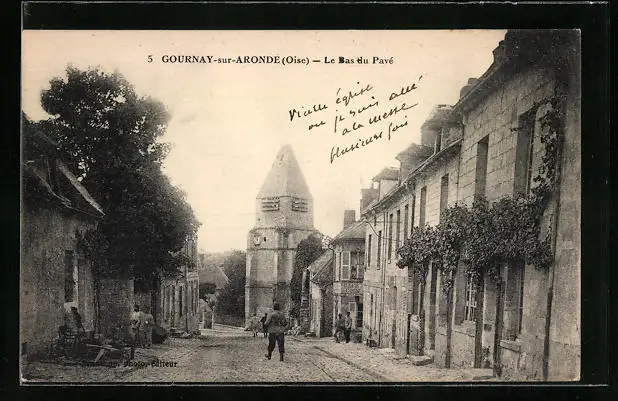 5 GOURNAY-sur-ARONDE (Oise) — Le Bas du Pavé
Vieille église
ou je suis allé
a la messe
plusieurs fois
Photo, éditeur